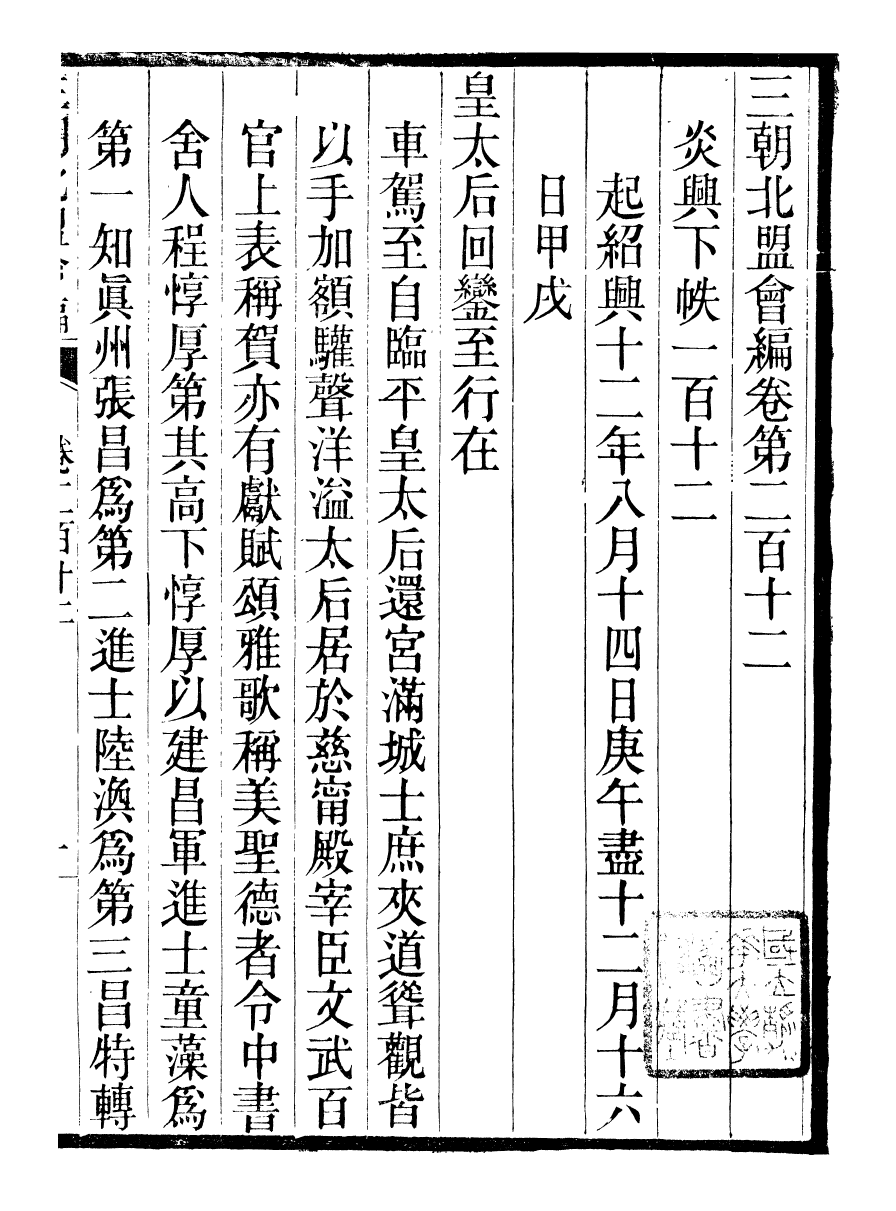 三朝北盟會編卷第二百十二
炎興下帙一百十二
起紹興十二年八月十四日庚午盡十二月十六
日甲戌
皇太后回鑾至行在
車駕至自臨平皇太后還宮滿城士庶夾道聳觀皆
以手加額驩聲洋溢太后居於慈甯殿宰臣文武百
官上表稱賀亦有獻賦頌雅歌稱美聖德者令中書
舍人程惇厚第其高下惇厚以建昌軍進士童藻爲
第一知眞州張昌爲第二進士陸渙爲第三昌特轉
卷二百十二
一